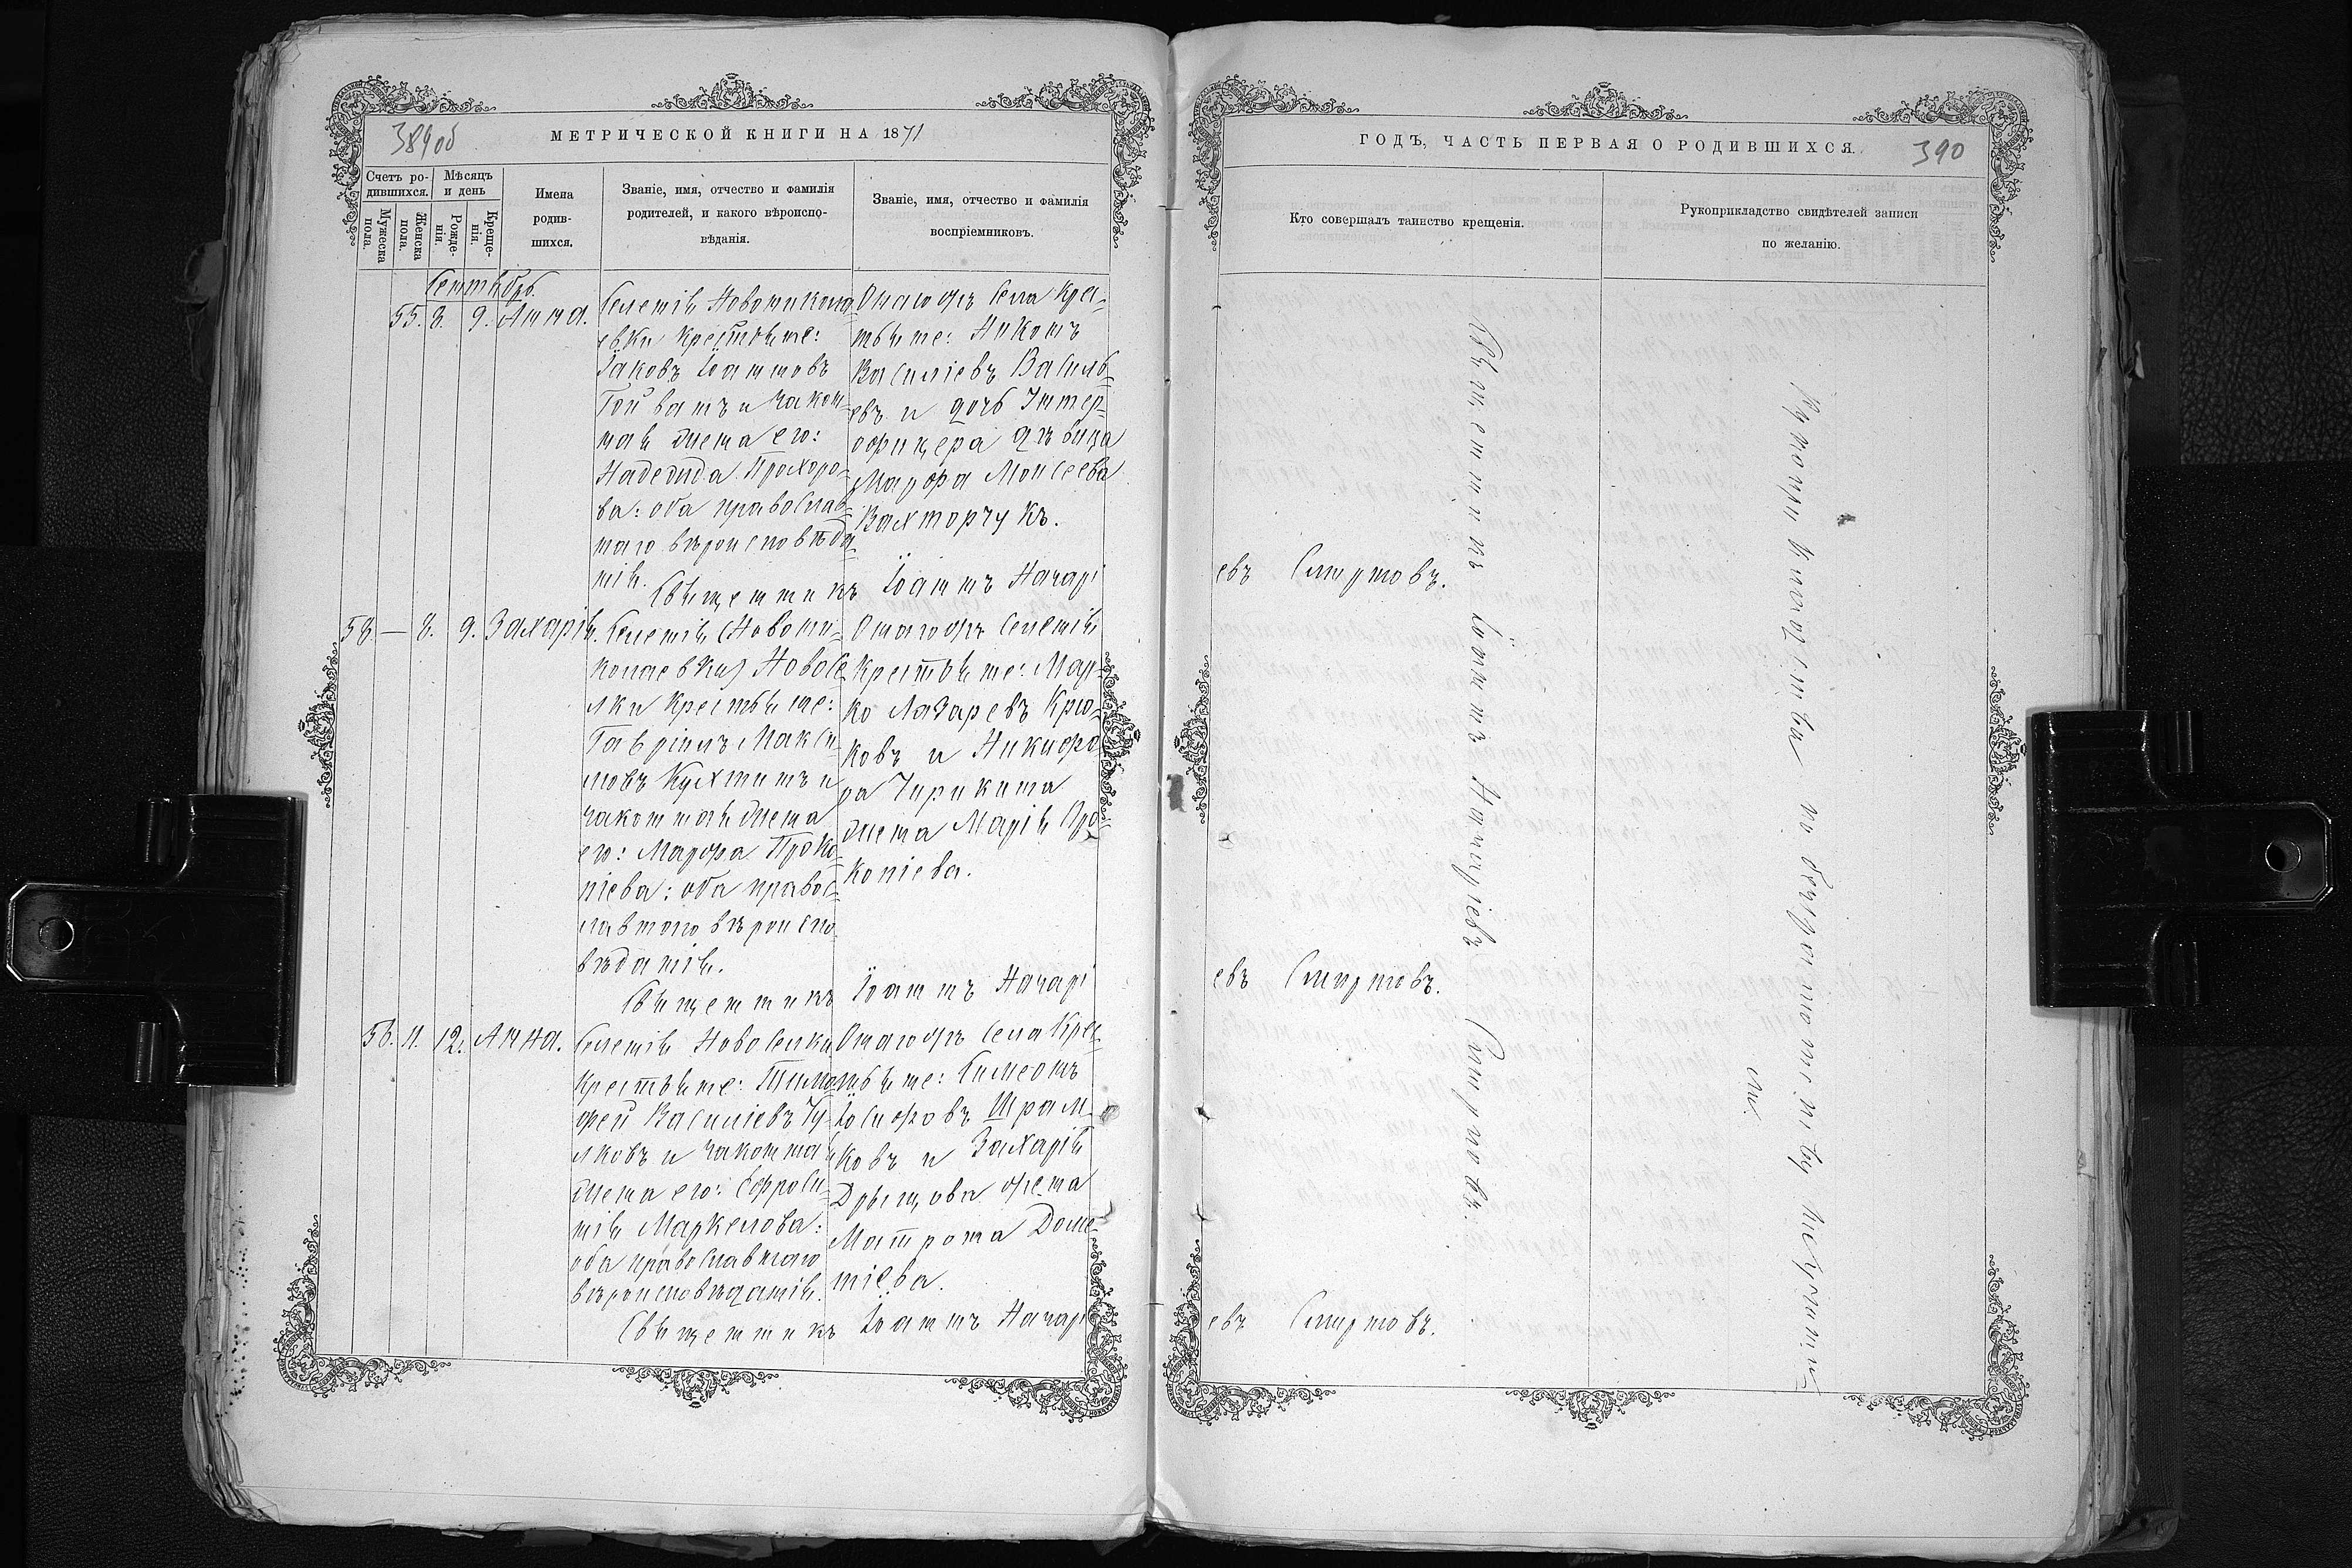 389об
МЕТРИЧЕСКОЙ КНИГИ НА 1871
Счетъ ро-
дившихся.
Мѣсяцъ
и день
Мужеска
пола.
Женска
пола.
Рожде-
нія.
Креще-
нія.
Имена
родив-
шихся.
Званіе, имя, отчество и фамилія
родителей, и какого вѣроиспо-
вѣданія.
Званіе, имя, отчество и фамилія
воспріемниковъ.
Сентябрь.
55. 8. 9. Анна.
Селенія Новоникола-
евки крестьяне:
Іаковъ Іоанновъ
и закон-
ная жена его:
Надежда Прохоро-
ва: оба православ-
наго вѣроисповѣда-
нія.
Онагожъ села крес-
тьяне: Никонъ
Василіевъ Василь-
евъ и дочь Унтер-
офицера дѣвица
Марѳа Моисеева
Вахторчукъ.
Священникъ Іоаннъ Назарі
58. — 8. 9. Захарія.
Селенія (Новони-
колаевки) Новосе-
лки крестьяне:
Гавріилъ Макси-
мовъ Кухтинъ и
законная жена
его: Марѳа Проко-
піева: оба правос-
лавного вѣроиспо-
вѣданія.
Онагожъ селенія
крестьяне: Мар-
ко Лазаревъ Крю-
ковъ и Никифо-
ра Чирикина
жена Марія Про-
копіева.
Священникъ Іоаннъ Назарі
56. 11. 12. Анна.
Селенія Новоселки
крестьяне: Тимо-
фей Василіевъ
и законная
жена его: Ефроси-
нія Маркелова:
оба православнаго
вѣроисповѣданія.
Онагожъ села крес-
тьяне: Симеонъ
Іосифовъ Шрам-
ковъ и Захарія
жена
Матрона Доме-
тіева.
Священникъ Іоаннъ Назарі
ГОДЪ, ЧАСТЬ ПЕРВАЯ О РОДИВШИХСЯ.
390
Кто совершалъ таинство крещенія.
Рукоприкладство свидѣтелей записи
по желанію.
евъ Смирновъ.
евъ Смирновъ.
евъ Смирновъ.
Священникъ Іоаннъ Назаріевъ Смирновъ.
Рукоприкладства по безграмотству не учини-
ли.